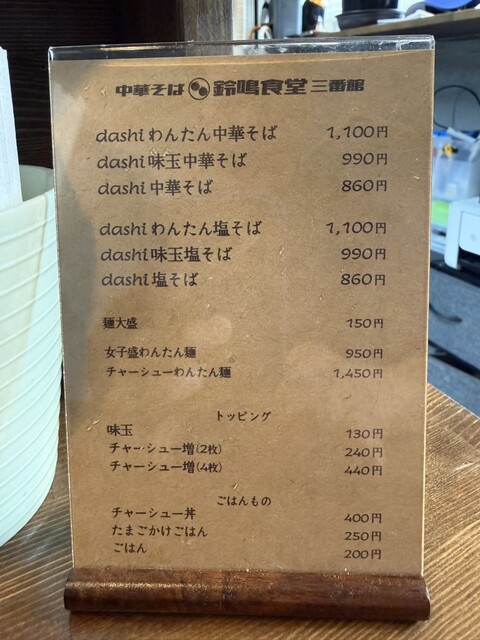 中華そば 鈴鳴食堂 三番館
dashi わんたん中華そば 1,100円
dashi 味玉中華そば 990円
dashi 中華そば 860円
dashi わんたん塩そば 1,100円
dashi 味玉塩そば 990円
dashi 塩そば 860円
麺大盛 150円
女子盛わんたん麺 950円
チャーシューわんたん麺 1,450円
トッピング
味玉 130円
チャーシュー増(2枚) 240円
チャーシュー増(4枚) 440円
ごはんもの
チャーシュー丼 400円
たまごかけごはん 250円
ごはん 200円